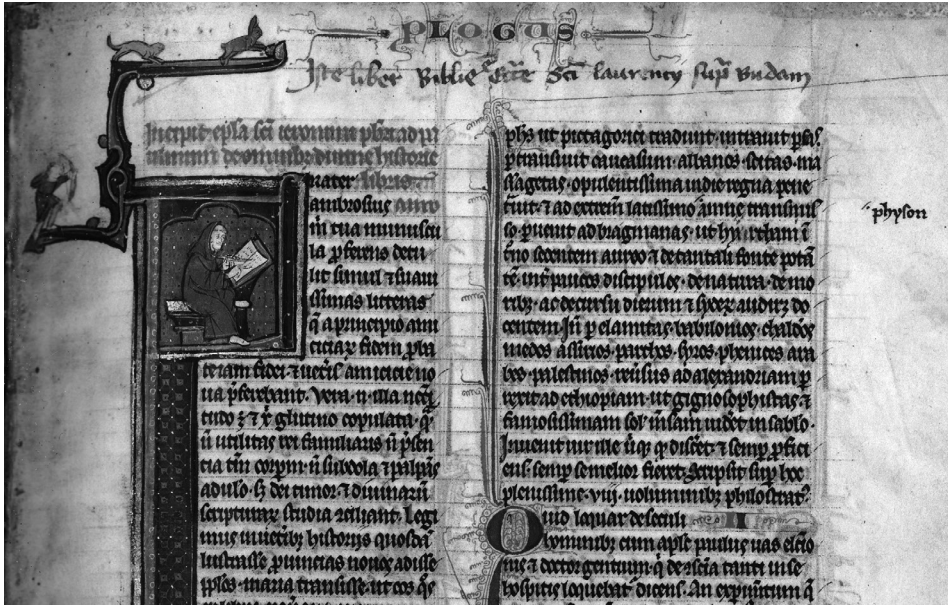 PLOGUS
Iste liber Biblie est Sci laurencij supra Budam
Incipit epła sci ieronimi pbri ad pau
linum de omnibus diuine historie
Frater libris
ambrosius
m tua munuscu
la p̄ferens detu
lit simul ⁊ suaui
ssimas litteras
q̄ a principio ami
ciciaꝝ fidem pba
te iam fidei ⁊ ueteris amicicie no
ua p̄ferebant. Vera n̄ illa necī
tudo ē ⁊ x̄p̄i glutino copulata. q̄m
n̄ utilitas rei familiaris n̄ p̄sen
cia tm̄ corpm̄. n̄ subdola ⁊ palpās
adulō. sꝫ dei timor. ⁊ diuinarū
scripturaꝝ studia ꝯciliant. Legi
mus in ueteribꝫ historijs quosdā
lustrasse puincias nouos adisse
pplos. maria transisse. ut eos q̄s
phs ut pictagorici tradunt. intrauit psas.
ptransiuit caucasum. albanos. scitas. ma
ssagetas. opulentissima indie regna pene
trauit. ⁊ ad extrem̄ latissimo amne transmis
so. puenit ad bragmanas. ut hyarcham ī
thro sedentem aureo ⁊ de tantali fonte potā
tē. int̄ paucos discipulos. de natura. de mo
ribꝫ. ac de cursu dierum ⁊ sideꝝ audiret do
centem. In̄ p elamitas. babilonios. chaldeos
medos. assirios. parthos. syros. phenices. ara
bes. palestinos. reūsus ad alexandriam. p
rexit ad ethiopiam. ut gignosophistas. ⁊
famosissimam sol' m̄sam uideret in sablo.
Inuenit ille uir ubiq̄ꝫ q̄ disc̄et. ⁊ semp pfici
ens. semp se melior fieret. Scripsit sup hoc
plenissime. viij. uoluminibꝫ philostratꝰ.
Quid loquar de seculi
hominibꝫ. cum apłs paulus uas elcīo
nis. ⁊ doctor gentium. q̄ de ꝯscīa tanti in se
hospitis loquebat̄ dicens. An expimtum q̄
physon